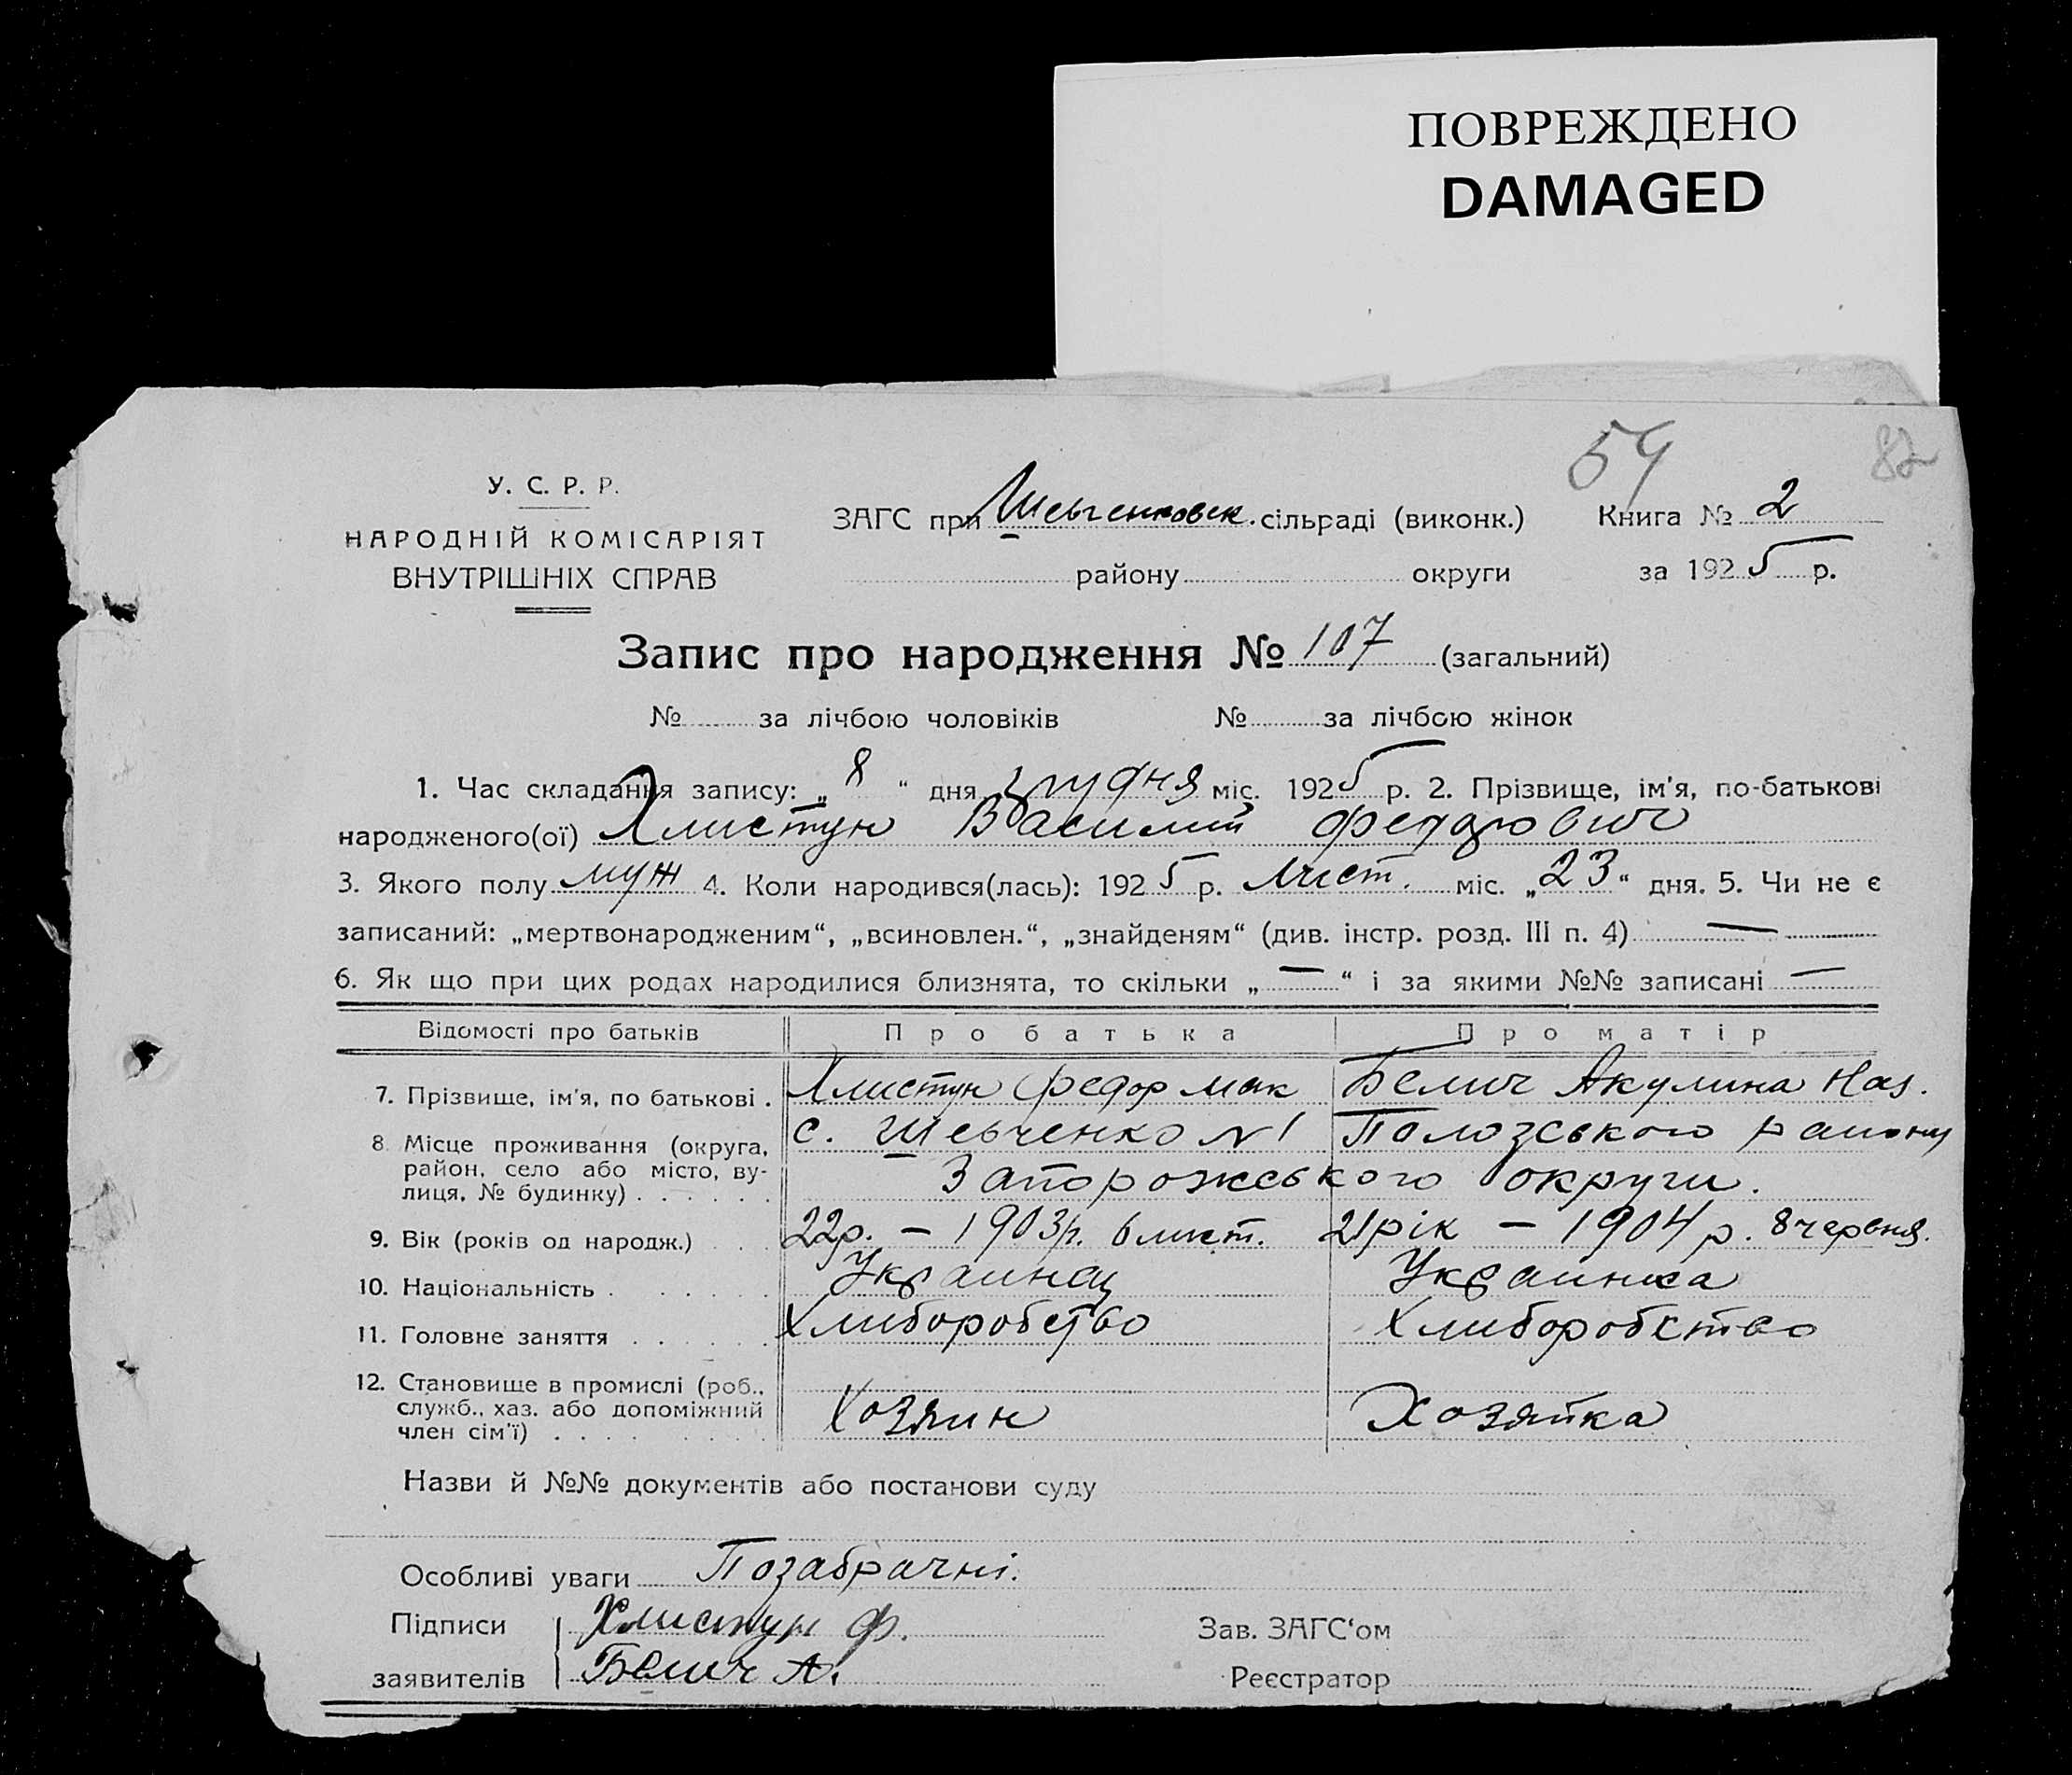 ПОВРЕЖДЕНО
DAMAGED
54 82
У. С. Р. Р.
НАРОДНІЙ КОМІСАРІЯТ
ВНУТРІШНІХ СПРАВ
ЗАГС при Шевченковск. сільраді (виконк.) Книга № 2
району округи за 1925 р.
Запис про народження № 107 (загальний)
№ за лічбою чоловіків № за лічбою жінок
1. Час складання запису: „8“ дня грудня міс. 1925 р. 2. Прізвище, ім'я, по-батькові
народженого(ої) Хлистун Василий Федорович
3. Якого полу муж 4. Коли народився(лась): 1925 р. Лист. міс. „23“ дня. 5. Чи не є
записаний: „мертвонародженим“, „всиновлен.“, „знайденям“ (див. інстр. розд. III п. 4) —
6. Як що при цих родах народилися близнята, то скільки „—“ і за якими №№ записані —
Відомості про батьків Про батька Про матір
7. Прізвище, ім'я, по батькові . Хлистун Федор Мак Белич Акулина Наз.
8 Місце проживання (округа, с. Шевченко N1 Пологського району
район, село або місто, ву-
лиця, № будинку) . . . . . . Запорожського округи.
9. Вік (років од народж.) . . . 22р. — 1903р. 6 лист. 21 рік — 1904 р. 8 червня.
10. Національність . . . . . . Украинец Украинка
11. Головне заняття . . . . . . Хлиборобство Хлиборобство
12. Становище в промислі (роб.,
служб., хаз. або допоміжний Хозяин Хозяйка
член сім'ї) . . . . . . . .
Назви й №№ документів або постанови суду
Особливі уваги Позабрачні.
Підписи Хлистун Ф. Зав. ЗАГС'ом
заявителів Белич А. Реєстратор